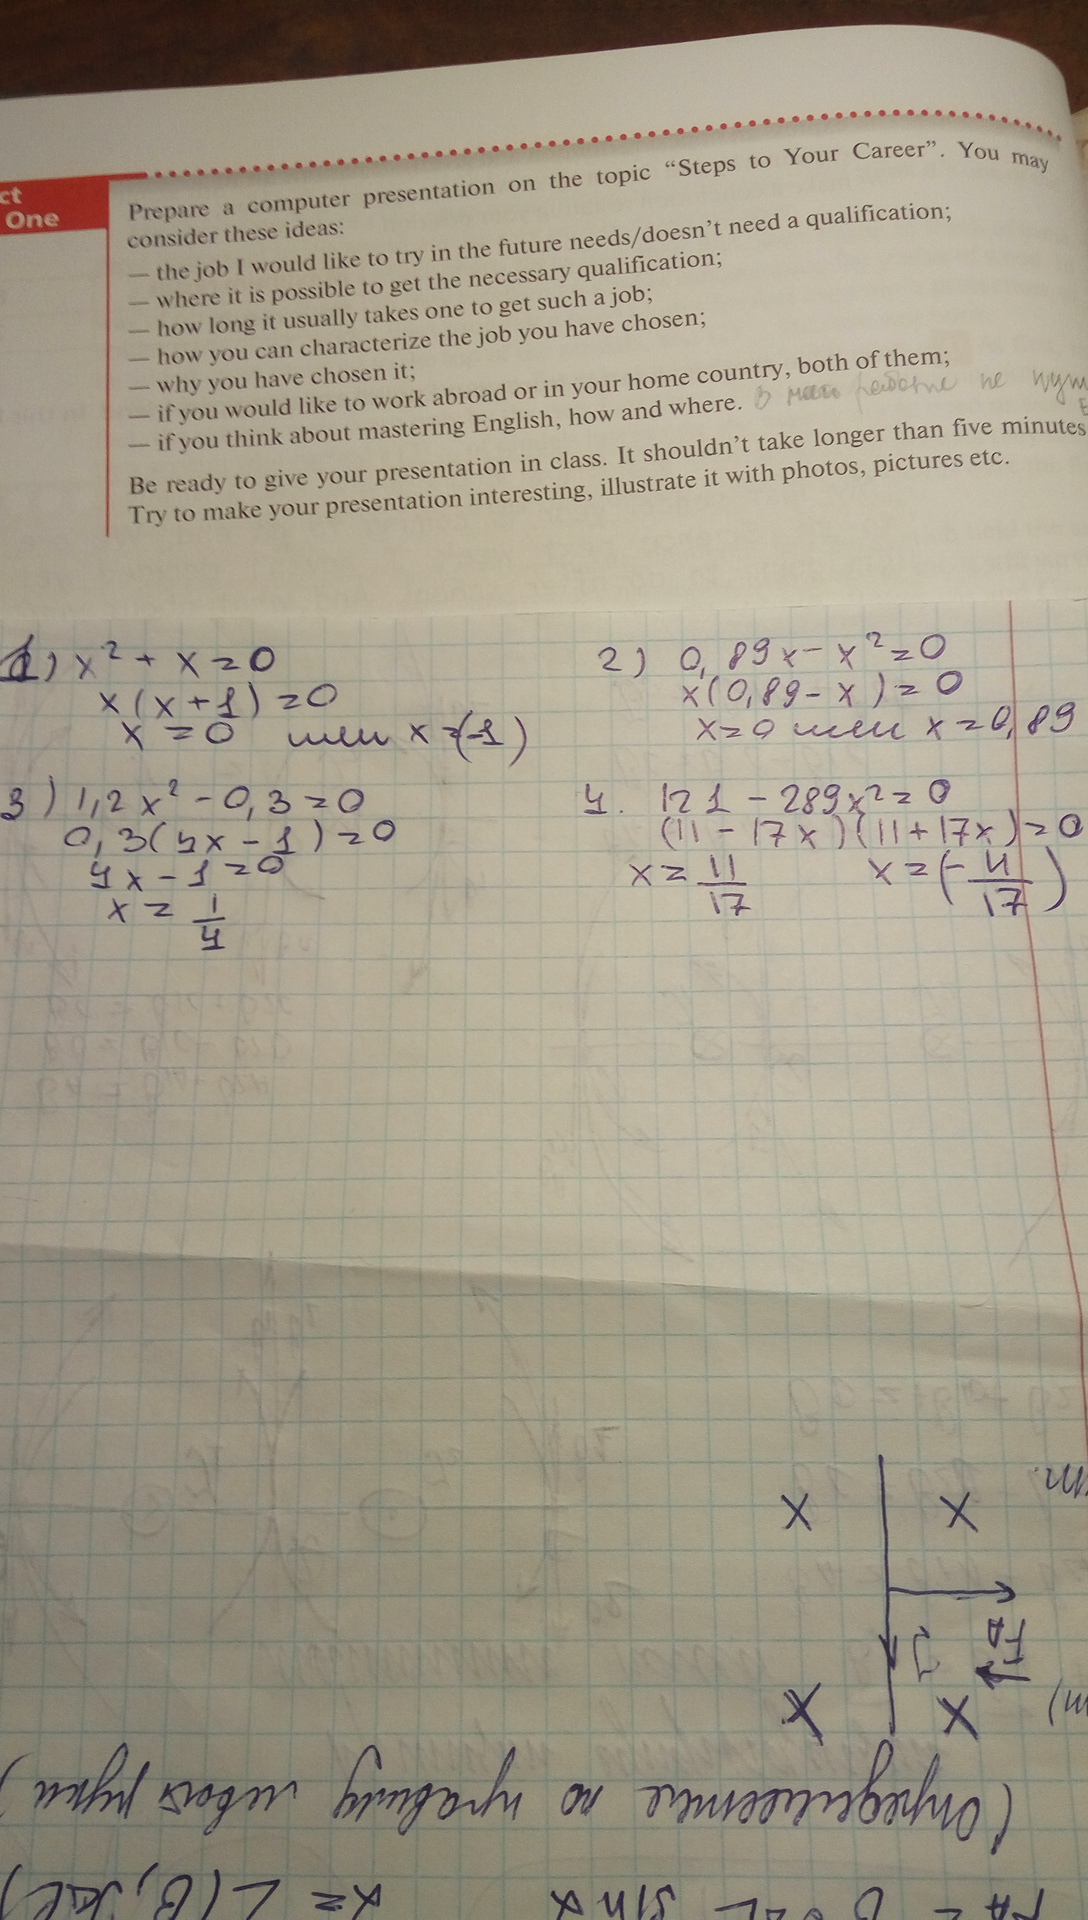 ct
One
Prepare a computer presentation on the topic “Steps to Your Career”. You may
consider these ideas:
— the job I would like to try in the future needs/doesn’t need a qualification;
— where it is possible to get the necessary qualification;
— how long it usually takes one to get such a job;
— how you can characterize the job you have chosen;
— why you have chosen it;
— if you would like to work abroad or in your home country, both of them;
— if you think about mastering English, how and where.
Be ready to give your presentation in class. It shouldn’t take longer than five minutes
Try to make your presentation interesting, illustrate it with photos, pictures etc.
1) x² + x = 0
x(x+1) = 0
x = 0 или x = (-1)
2) 0,89x - x² = 0
x(0,89 - x) = 0
x = 0 или x = 0,89
3) 1,2x² - 0,3 = 0
0,3(4x - 1) = 0
4x - 1 = 0
x = 1/4
4. 121 - 289x² = 0
(11 - 17x)(11 + 17x) = 0
x = 11/17 x = (-11/17)
(определяется по правилу левой руки)